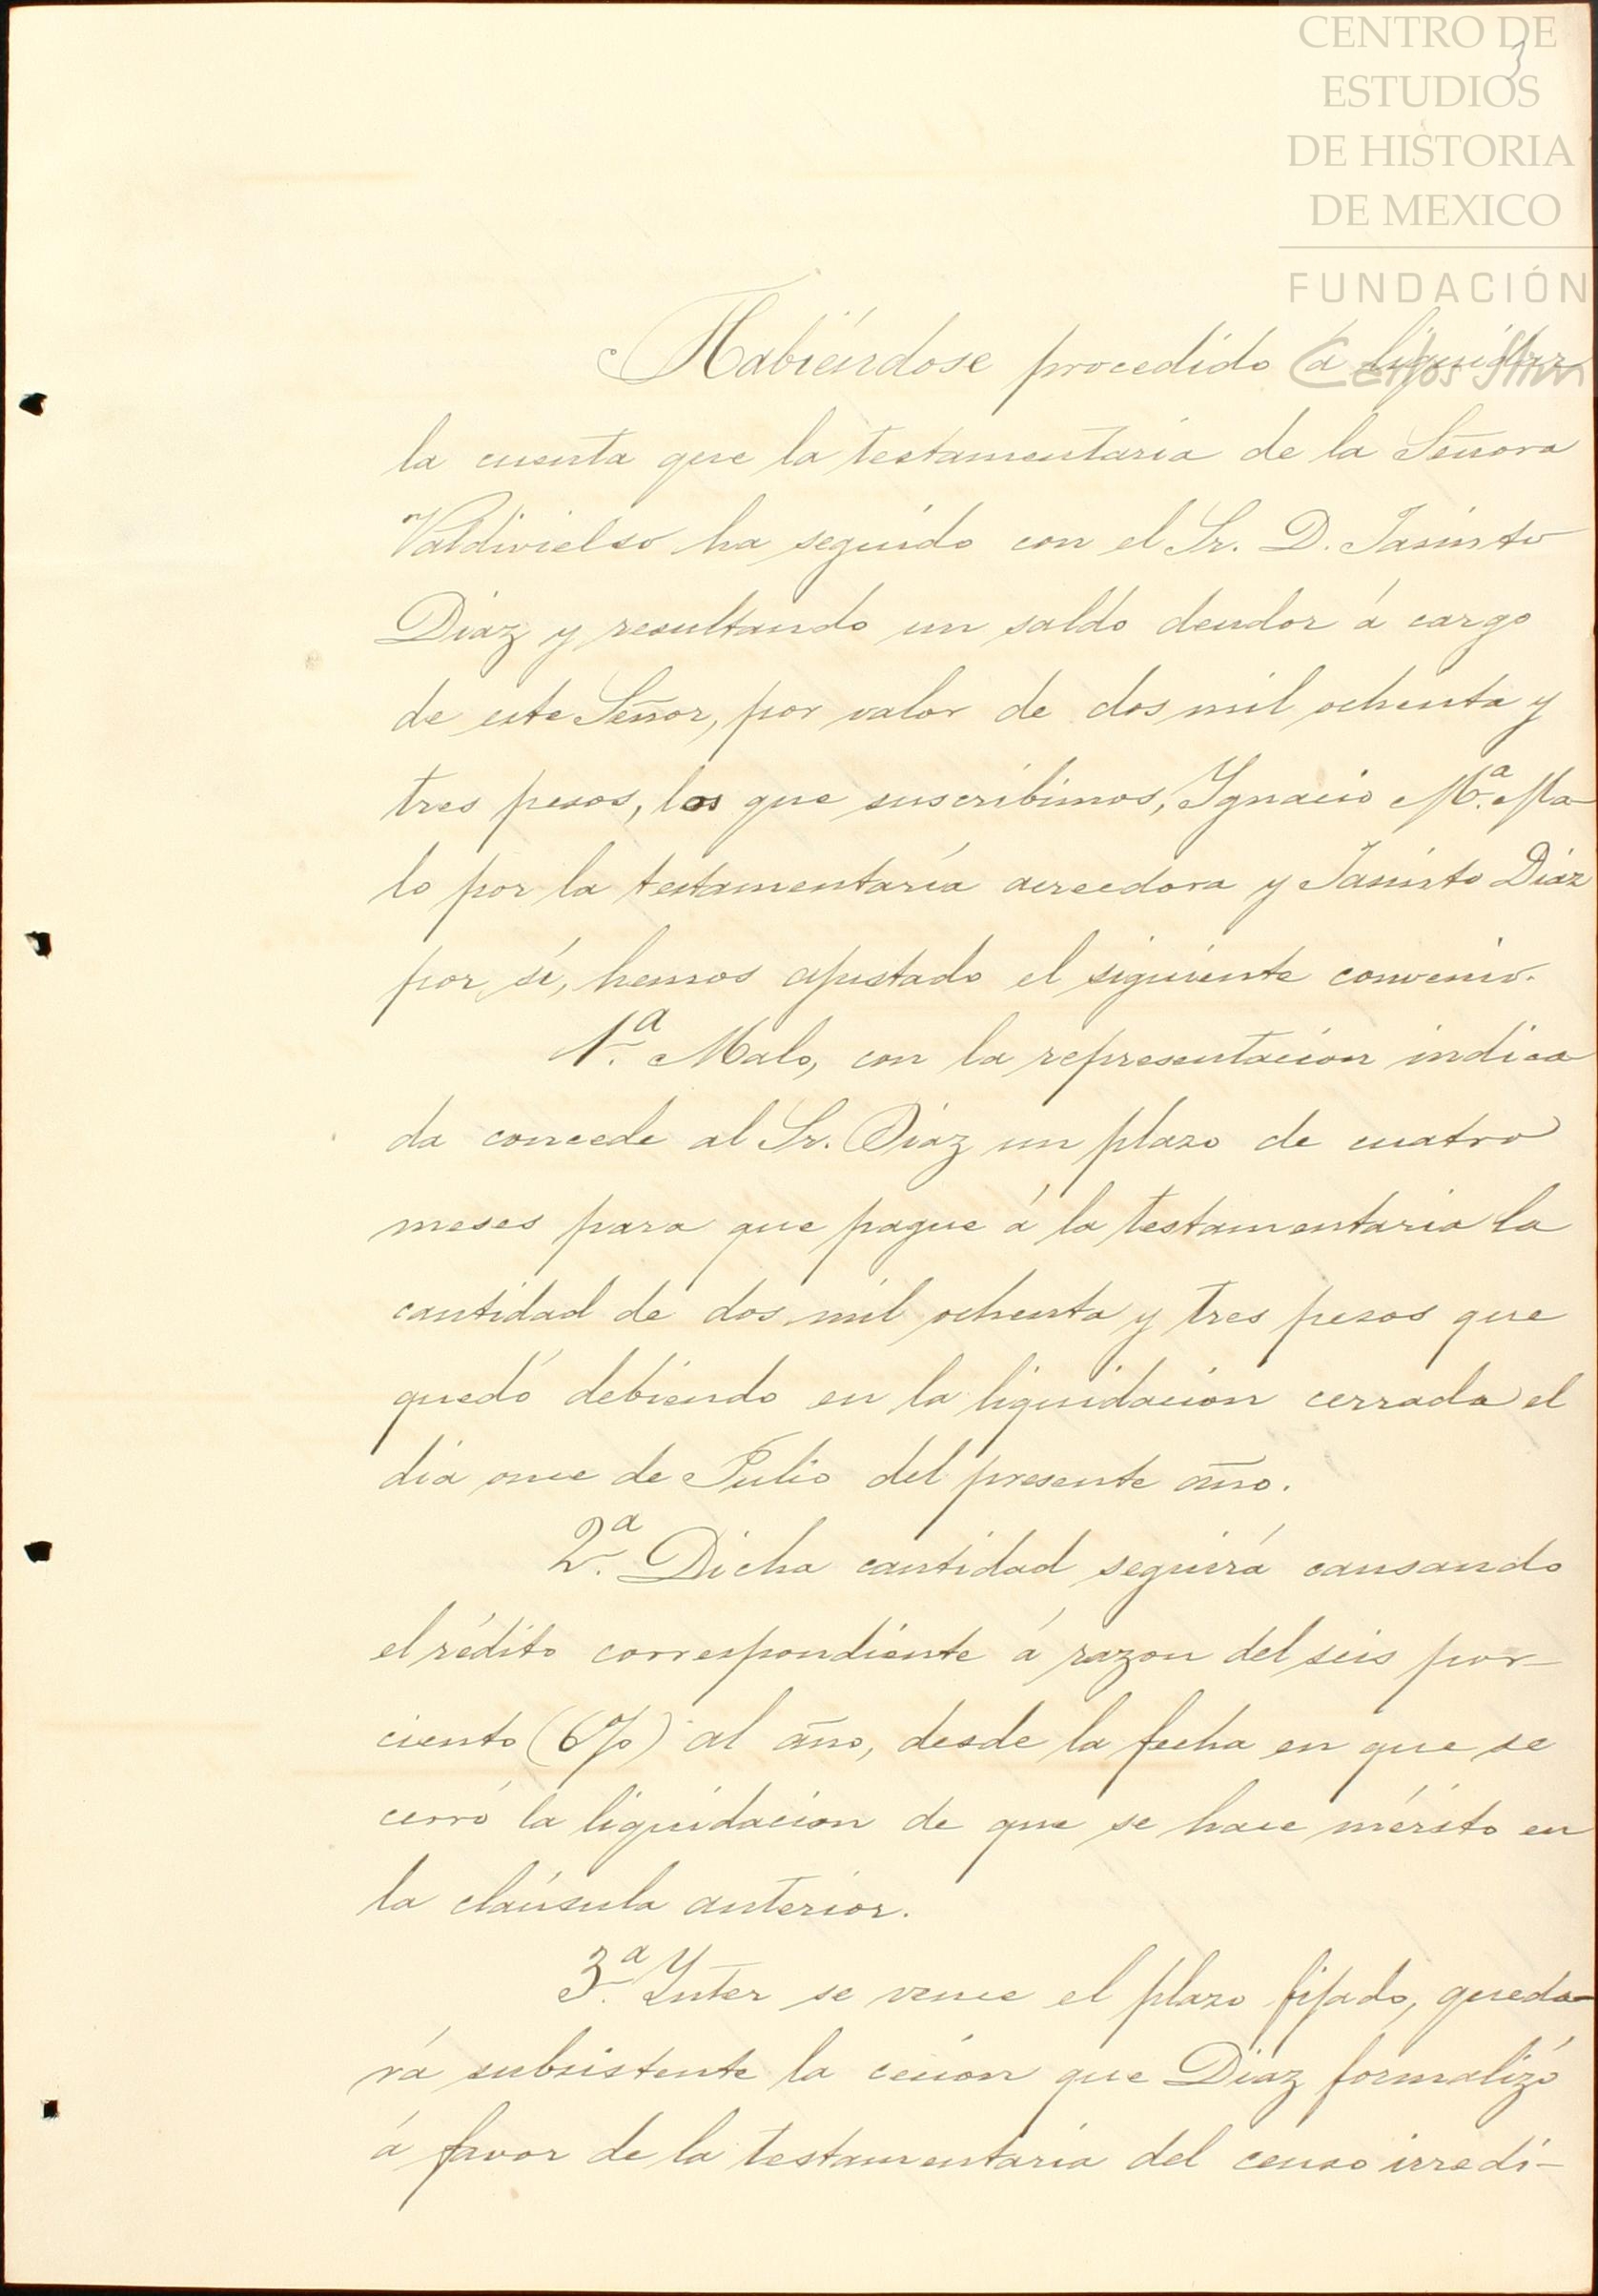 CENTRO DE
ESTUDIOS
DE HISTORIA
DE MEXICO
FUNDACIÓN
Carlos Slim
3
Habiéndose procedido á liquidar
la cuenta que la testamentaría de la Señora
Valdivielso ha seguido con el Sr. D. Jacinto
Diaz y resultando un saldo deudor á cargo
de este Señor, por valor de dos mil ochenta y
tres pesos, los que suscribimos, Ygnacio M.ª Ma-
lo por la testamentaría acreedora y Jacinto Diaz
por sí, hemos ajustado el siguiente convenio.
1.ª Malo, con la representacion indica
da concede al Sr. Diaz un plazo de cuatro
meses para que pague á la testamentaria la
cantidad de dos mil ochenta y tres pesos que
quedó debiendo en la liquidacion cerrada el
dia once de Julio del presente año.
2.ª Dicha cantidad seguirá causando
el rédito correspondiente á razon del seis por-
ciento (6%) al año, desde la fecha en que se
cerró la liquidacion de que se hace mérito en
la claúsula anterior.
3.ª Ynter se vence el plazo fijado, queda-
rá subsistente la cesion que Diaz formalizó
á favor de la testamentaria del censo irredi-